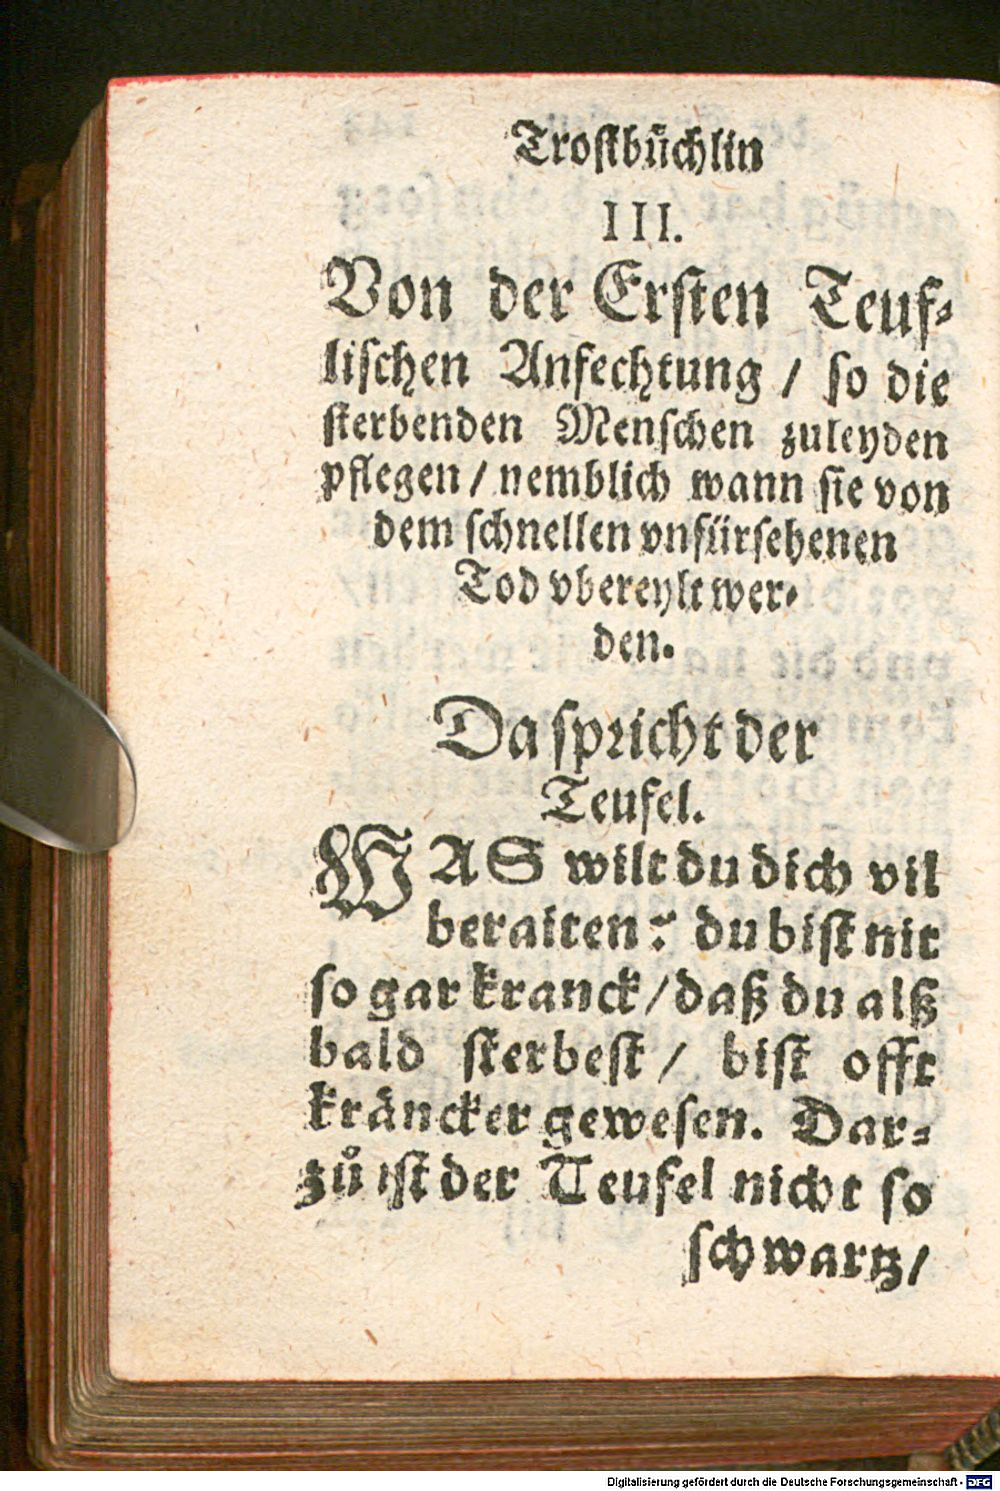 Trostbüchlin
III.
Von der Ersten Teuf-
lischen Anfechtung / so die
sterbenden Menschen zuleyden
pflegen / nemblich wann sie von
dem schnellen vnfürsehenen
Tod vbereylt wer-
den.
Da spricht der
Teufel.
WAS wilt du dich vil
beraiten? du bist nit
so gar kranck / daß du alß
bald sterbest / bist offt
kräncker gewesen. Dar-
zů ist der Teufel nicht so
schwartz /
Digitalisierung gefördert durch die Deutsche Forschungsgemeinschaft - DFG